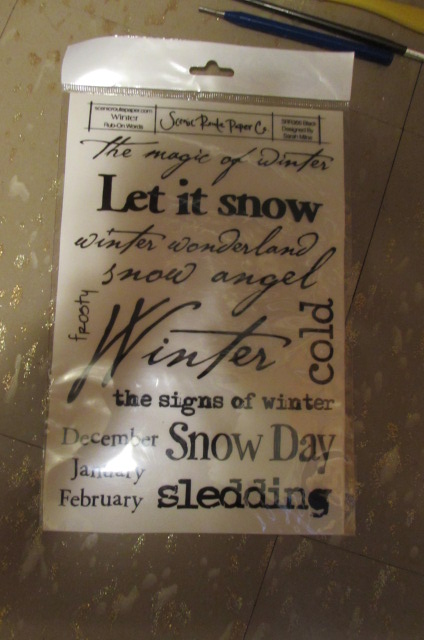 scenicroutepaper.com
Winter
Rub-On Words
Scenic Route Paper Co.
Designed By
the magic of winter
Let it snow
winter wonderland
snow angel
frosty
Winter
cold
the signs of winter
December
Snow Day
January
February
sledding